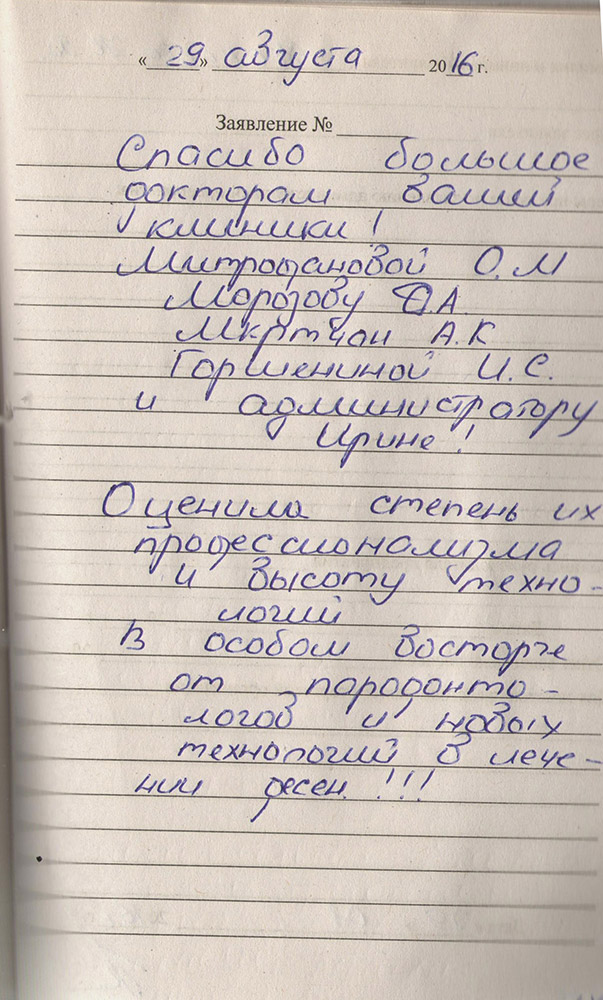 « 29 » августа 2016 г.
Заявление №
Спасибо большое
докторам вашей
клиники!
Митрофановой О.М
Морозову Д.А.
Мкртчан А.К
Горшениной И.С.
и администратору
Ирине!
Оценила степень их
профессионализма
и высоту техно-
логий
В особом восторге
от пародонто-
логов и новых
технологий в лече-
нии десен!!!